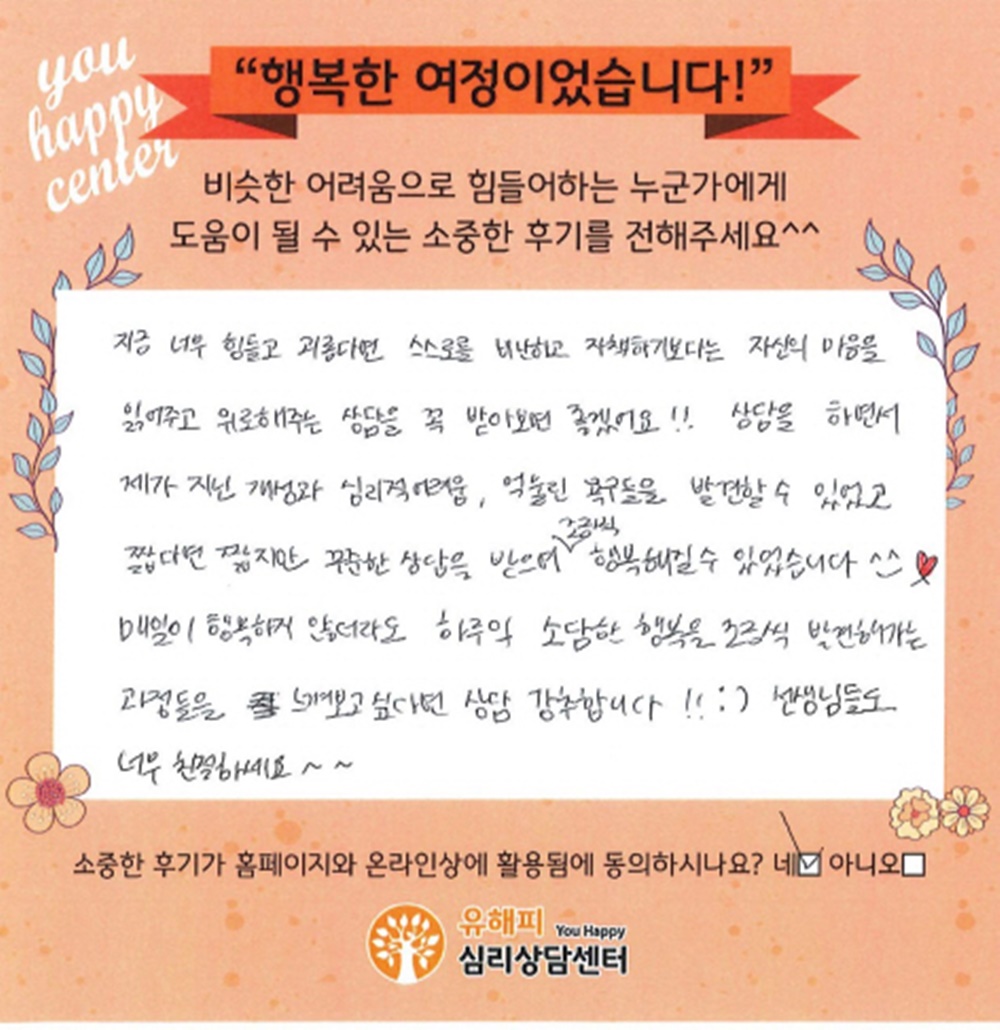 you
happy
center
“행복한 여정이었습니다!”
비슷한 어려움으로 힘들어하는 누군가에게
도움이 될 수 있는 소중한 후기를 전해주세요^^
지금 너무 힘들고 괴롭다면 스스로를 비난하고 자책하기보다는 자신의 마음을
읽어주고 위로해주는 상담을 꼭 받아보면 좋겠어요!! 상담을 하면서
제가 지닌 개성과 심리적어려움, 억눌린 욕구들을 발견할 수 있었고
짧다면 짧지만 꾸준한 상담을 받으며 조금씩 행복해질 수 있었습니다 ^^ ♥
매일이 행복하지 않더라도 하루의 소담한 행복을 조금씩 발견해가는
과정들을 느껴보고 싶다면 상담 강추합니다!! :) 선생님들도
너무 친절하세요~~
소중한 후기가 홈페이지와 온라인상에 활용됨에 동의하시나요? 네☑ 아니오☐
유해피 You Happy
심리상담센터